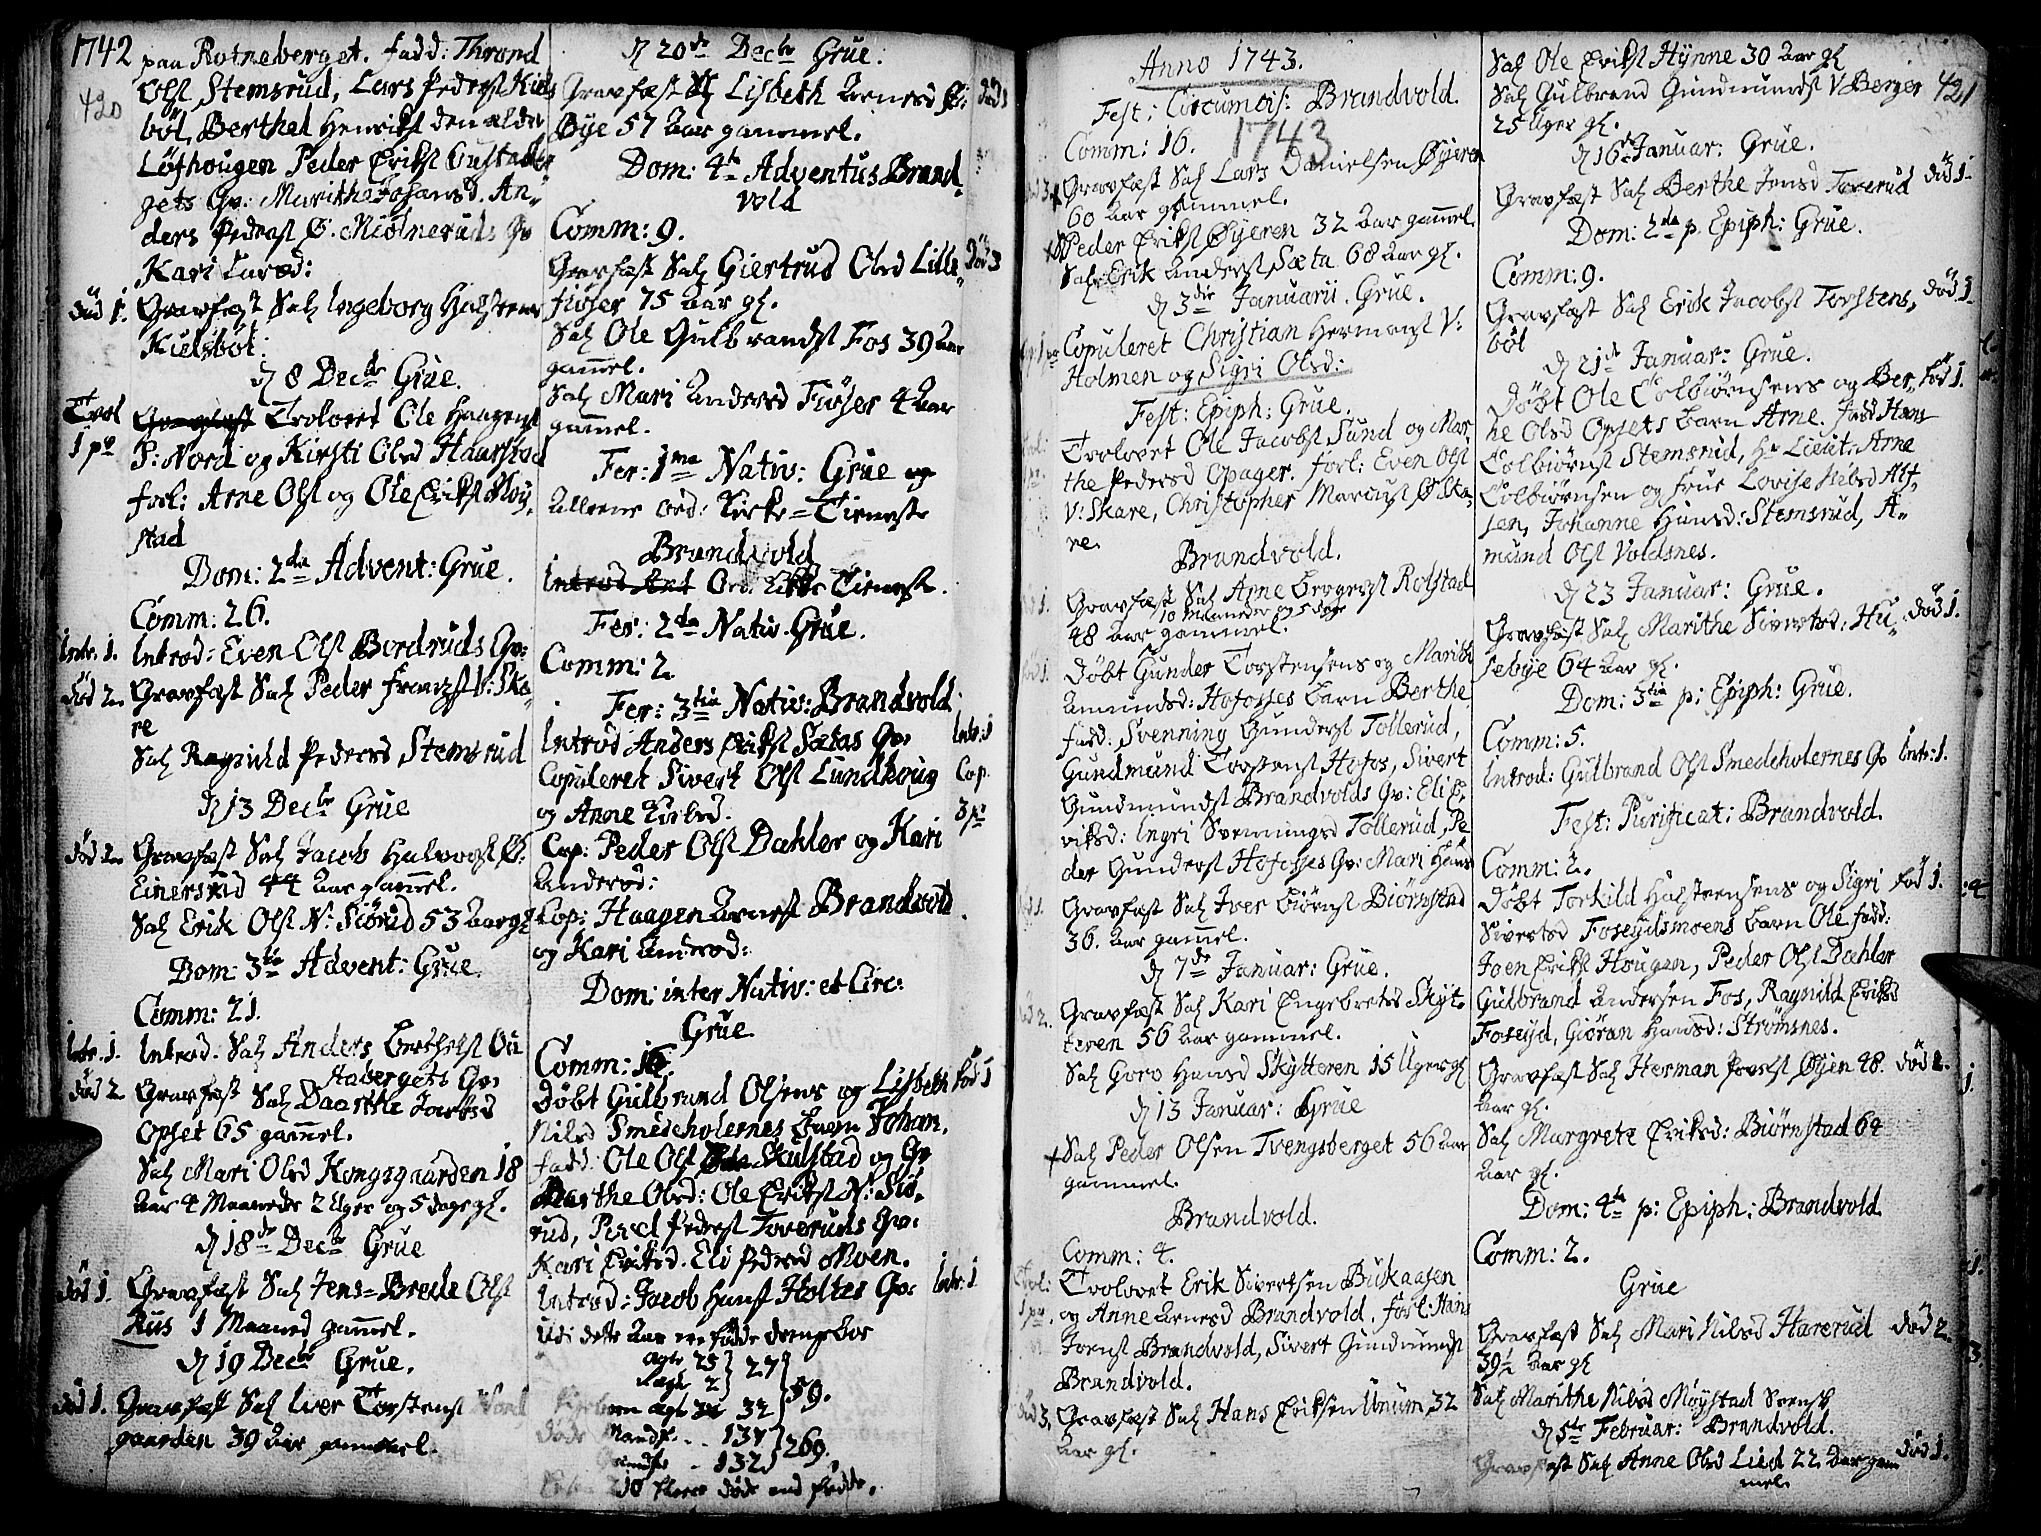 1742
420
paa Rotneberget. fadd: Thrond
Olst Stemsrud, Lars Pederst Kiels
böl, Berthel Henrikst den ældre
Löfthougen Peder Erikst Gustad
gets Qv: Marithe Johansd. An¬
ders Pederst Ø. Miölneruds Qv
Kari Larsd:
död 1. Gravfæst Sal Ingeborg Halsteens
Kielsböl.
d 8 Decbr Grue.
Trol Trolovet Ole Haagenst
1 par P: Nord og Kirsti Olsd Haarstad
forl: Arne Olst og Ole Erikst Möy¬
stad
Dom: 2da Advent: Grue.
Comm: 26.
Intr. 1. Introd: Even Olst Bordruds Qv:
död 2. Gravfæst Sal Peder Franzst V: Ska¬
re
Sal Ragnild Pedersd Stemsrud
d 13 Decbr Grue
död 2. Gravfæst Sal Jacob Halvorst Ø:
Einersrud 44 Aar gammel.
Sal Erik Olst N: Siörud 53 Aar gl
Dom: 3tia Advent: Grue.
Comm: 21.
Intr. 1. Introd. Sal Anders Berthelst Gu
stabergets Qv:
död 2. Gravfæst Sal Daarthe Jacobsd
Opset 65 gammel.
Sal Mari Olsd Kongsgaarden 18
Aar 4 Maaneder 2 Uger og 5 dage gl.
d 18de Decbr Grue
död 1. Gravfæst Sal Jens=Brede Olst
Rus 1 Maaned gammel.
d 19 Decbr Grue.
död 1. Gravfæst Sal Iver Torstenst Nord
gaarden 39 Aar gammel.
d 20de Decbr Grue.
Gravfæst Sal Lisbeth Arnesd Ø: död 1
Øye 57 Aar gammel.
Dom: 4ta Adventus Brand¬
vold
Comm: 9.
Gravfæst Sal Giertrud Olsd Lille¬ död 3
fiöser 75 Aar gl.
Sal Ole Gulbrandst Fos 39 Aar
gammel.
Sal Mari Andersd Fiöser 4 Aar
gammel.
Fer: 1ma Nativ: Grue og
Alleene ord: Kirke=Tieneste
Brandvold
Ord. Kirke Tieneste.
Fer: 2da Nativ. Grue.
Comm: 2
Fer: 3tia Nativ: Brandvold
Introd Anders Erikst Sætas Qv: Intr: 1
Copuleret Sivert Olst Lundhoug Cop.
og Anne Larsd. 3 par
Cop: Peder Olst Dahler og Kari
Andersd:
Cop: Haagen Arnest Brandvold
og Kari Andersd:
Dom: inter Nativ: et Circ:
Grue
Comm: 16.
Döbt Gulbrand Olsens og Lisbeth föd 1
Nilsd Smedeholernes Barn Johan.
fadd: Ole Olst Skulstad og Qv
Marthe Olsd: Ole Erikst N: Siö¬
rud, Peder Pederst Toveruds Qv:
Kari Eriksd. Eli Pedersd Moen.
Introd: Jacob Hanst Holtes Qv: Intr. 1
Udi dette Aar ere födde drengebör
ægte 25 } 27
uægte 2 } 59.
ægte 32
Döde Mandk: .. 137 } 269.
.. 132
210 fleere döde end födde.
Anno 1743.
Fest: Circumcis: Brandvold.
1743
Comm: 16.
Gravfæst Sal Lars Danielsen Øyeren
60 Aar gammel.
Peder Erikst Øyeren 32 Aar gammel
Sal Erik Anderst Sæta 68 Aar gl.
d 3die Januarii. Grue.
Copuleret Christian Hermanst V:
Holmen og Sigri Olsd:
Fest: Epiph: Grue.
Trolovet Ole Jacobst Sund og Mar¬
the Pedersd Opager. forl: Even Olst
V: Skare, Christopher Marcust Ø Ska¬
re.
Brandvold.
Gravfæst Sal Arne Bergerst Rolstad
10 Maaneder og 5 dage
48 Aar gammel.
Döbt Gunder Torstensens og Marithe
Amundsd: Hofosses Barn Berthe
fadd: Svenning Gunderst Tollerud,
Gundmund Torstenst Hofos, Sivert
Gundmundst Brandvolds Qv: Eli E¬
riksd: Ingri Svenningsd Tollerud, Pe
der Gunderst Hofosses Qv: Mari Hans
Gravfæst Sal Iver Biörnst Biörnstad
36. Aar gammel.
d 7de Januar: Grue.
död 2. Gravfæst Sal Kari Engebretsd Skyt¬
teren 56 Aar gammel.
Sal Goro Hansd Skytteren 15 Uger gl
d 13 Januar: Grue
Sal Peder Olsen Tvengsberget 56 Aar
gammel.
Brandvold.
Comm: 4.
Trol: Trolovet Erik Sivertsen Bukaasen
1 par. og Anne Arnesd Brandvold. forl: Hans
Jornst Brandvold, Sivert Gundmundst
Brandvold.
död 3. Gravfæst Sal Hans Eriksen Unum 32
Aar gl.
421
Sal Ole Erikst Hynne 30 Aar gl
Sal Gulbrand Gundmundst V Berger
25 Uger gl.
d 16de Januar: Grue.
Gravfæst Sal Berthe Jensd Toverud död 1.
Dom: 2da p. Epiph: Grue.
Comm: 9.
Gravfæst Sal Erik Jacobst Torstens¬ död 1
böl
d 21de Januar: Grue.
Döbt Ole Colbiörnsens og Ber¬ föd 1.
the Olsd Opsets Barn Arne. fadd Hans
Colbiörnst Stemsrud, Hr Lieut: Arne
Colbiörnsen og Frue Lovise Nilsd Alf¬
sen, Johanne Hansd: Stemsrud, A¬
mund Olst Voldsnes.
d 23 Januar: Grue.
Gravfæst Sal Marithe Sivertsd: Hu¬ död 1.
sebye 64 Aar gl.
Dom: 3tia p: Epiph: Grue.
Comm: 5.
Introd: Gulbrand Olst Smedeholernes Qv Intr: 1.
Fest: Purificat: Brandvold.
Comm: 2.
Döbt Torkild Halsteensens og Sigri föd 1.
Sivertsd Foseydsmoens Barn Ole fadd:
Joen Erikst Hougen, Peder Olst Dahler
Gulbrand Andersen Fos, Ragnild Eriksd
Foseyd, Giöran Hansd: Strömsnes.
Gravfæst Sal Herman Povelst Øyen 48. död 2.
Aar gl.
Sal Margrete Eriksd: Biörnstad 64
Aar gl.
Dom: 4ta p: Epiph: Brandvold
Comm: 2.
Grue
Gravfæst Sal Mari Nilsd Harerud död 2.
39½ Aar gl
Sal Marithe Nilsd Möystad Svensk
d 5te Februar: Brandvold.
Gravfæst Sal Anne Olsd Lied 22. Aar gam död 1.
mel.